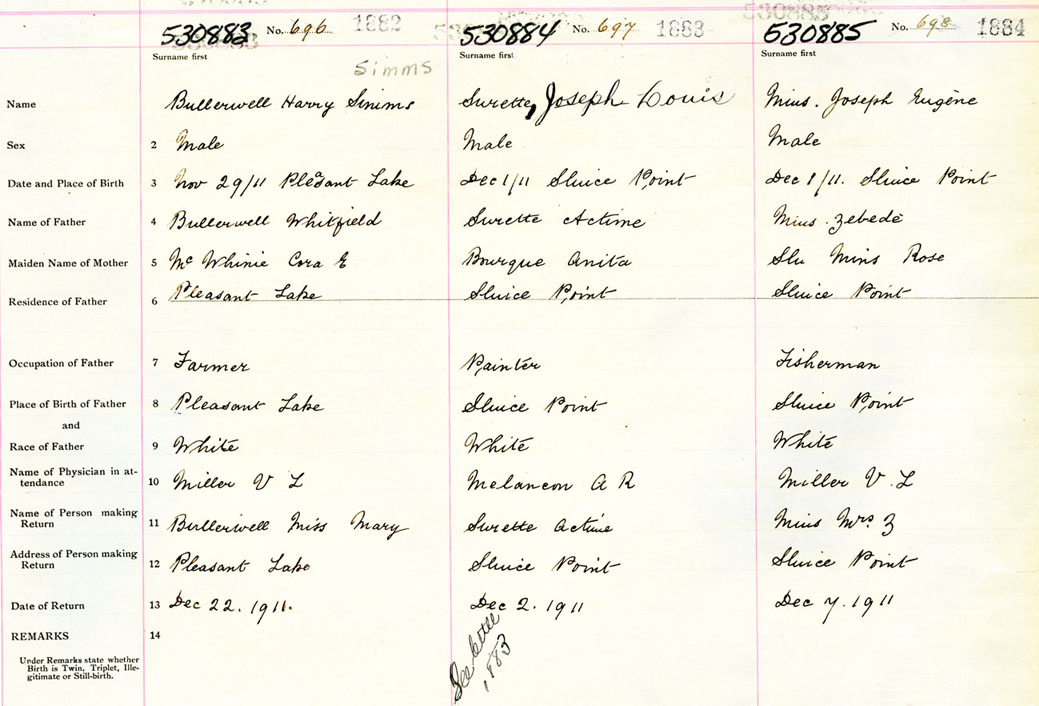 530883 No. 696 1882 530884 No. 697 1883 530885 No. 698 1884
Surname first Surname first Surname first
Simms
Name Bullerwell Harry Simms Surette, Joseph Louis Mius. Joseph Eugène
Sex 2 Male Male Male
Date and Place of Birth 3 Nov 29/11 Pleasant Lake Dec 1/11 Sluice Point Dec 1/11. Sluice Point
Name of Father 4 Bullerwell Whitfield Surette Actime Mius. Zebedé
Maiden Name of Mother 5 Mc Whinie Cora E Bourque Anita Mius Rose
Residence of Father 6 Pleasant Lake Sluice Point Sluice Point
Occupation of Father 7 Farmer Painter Fisherman
Place of Birth of Father 8 Pleasant Lake Sluice Point Sluice Point
and
Race of Father 9 White White White
Name of Physician in at-
tendance 10 Miller V L Melancon A R Miller V. L
Name of Person making
Return 11 Bullerwell Miss Mary Surette Actime Mius Mrs Z
Address of Person making
Return 12 Pleasant Lake Sluice Point Sluice Point
Date of Return 13 Dec 22. 1911. Dec 2. 1911 Dec 7. 1911
REMARKS 14
See
1883
Under Remarks state whether
Birth is Twin, Triplet, Ille-
gitimate or Still-birth.